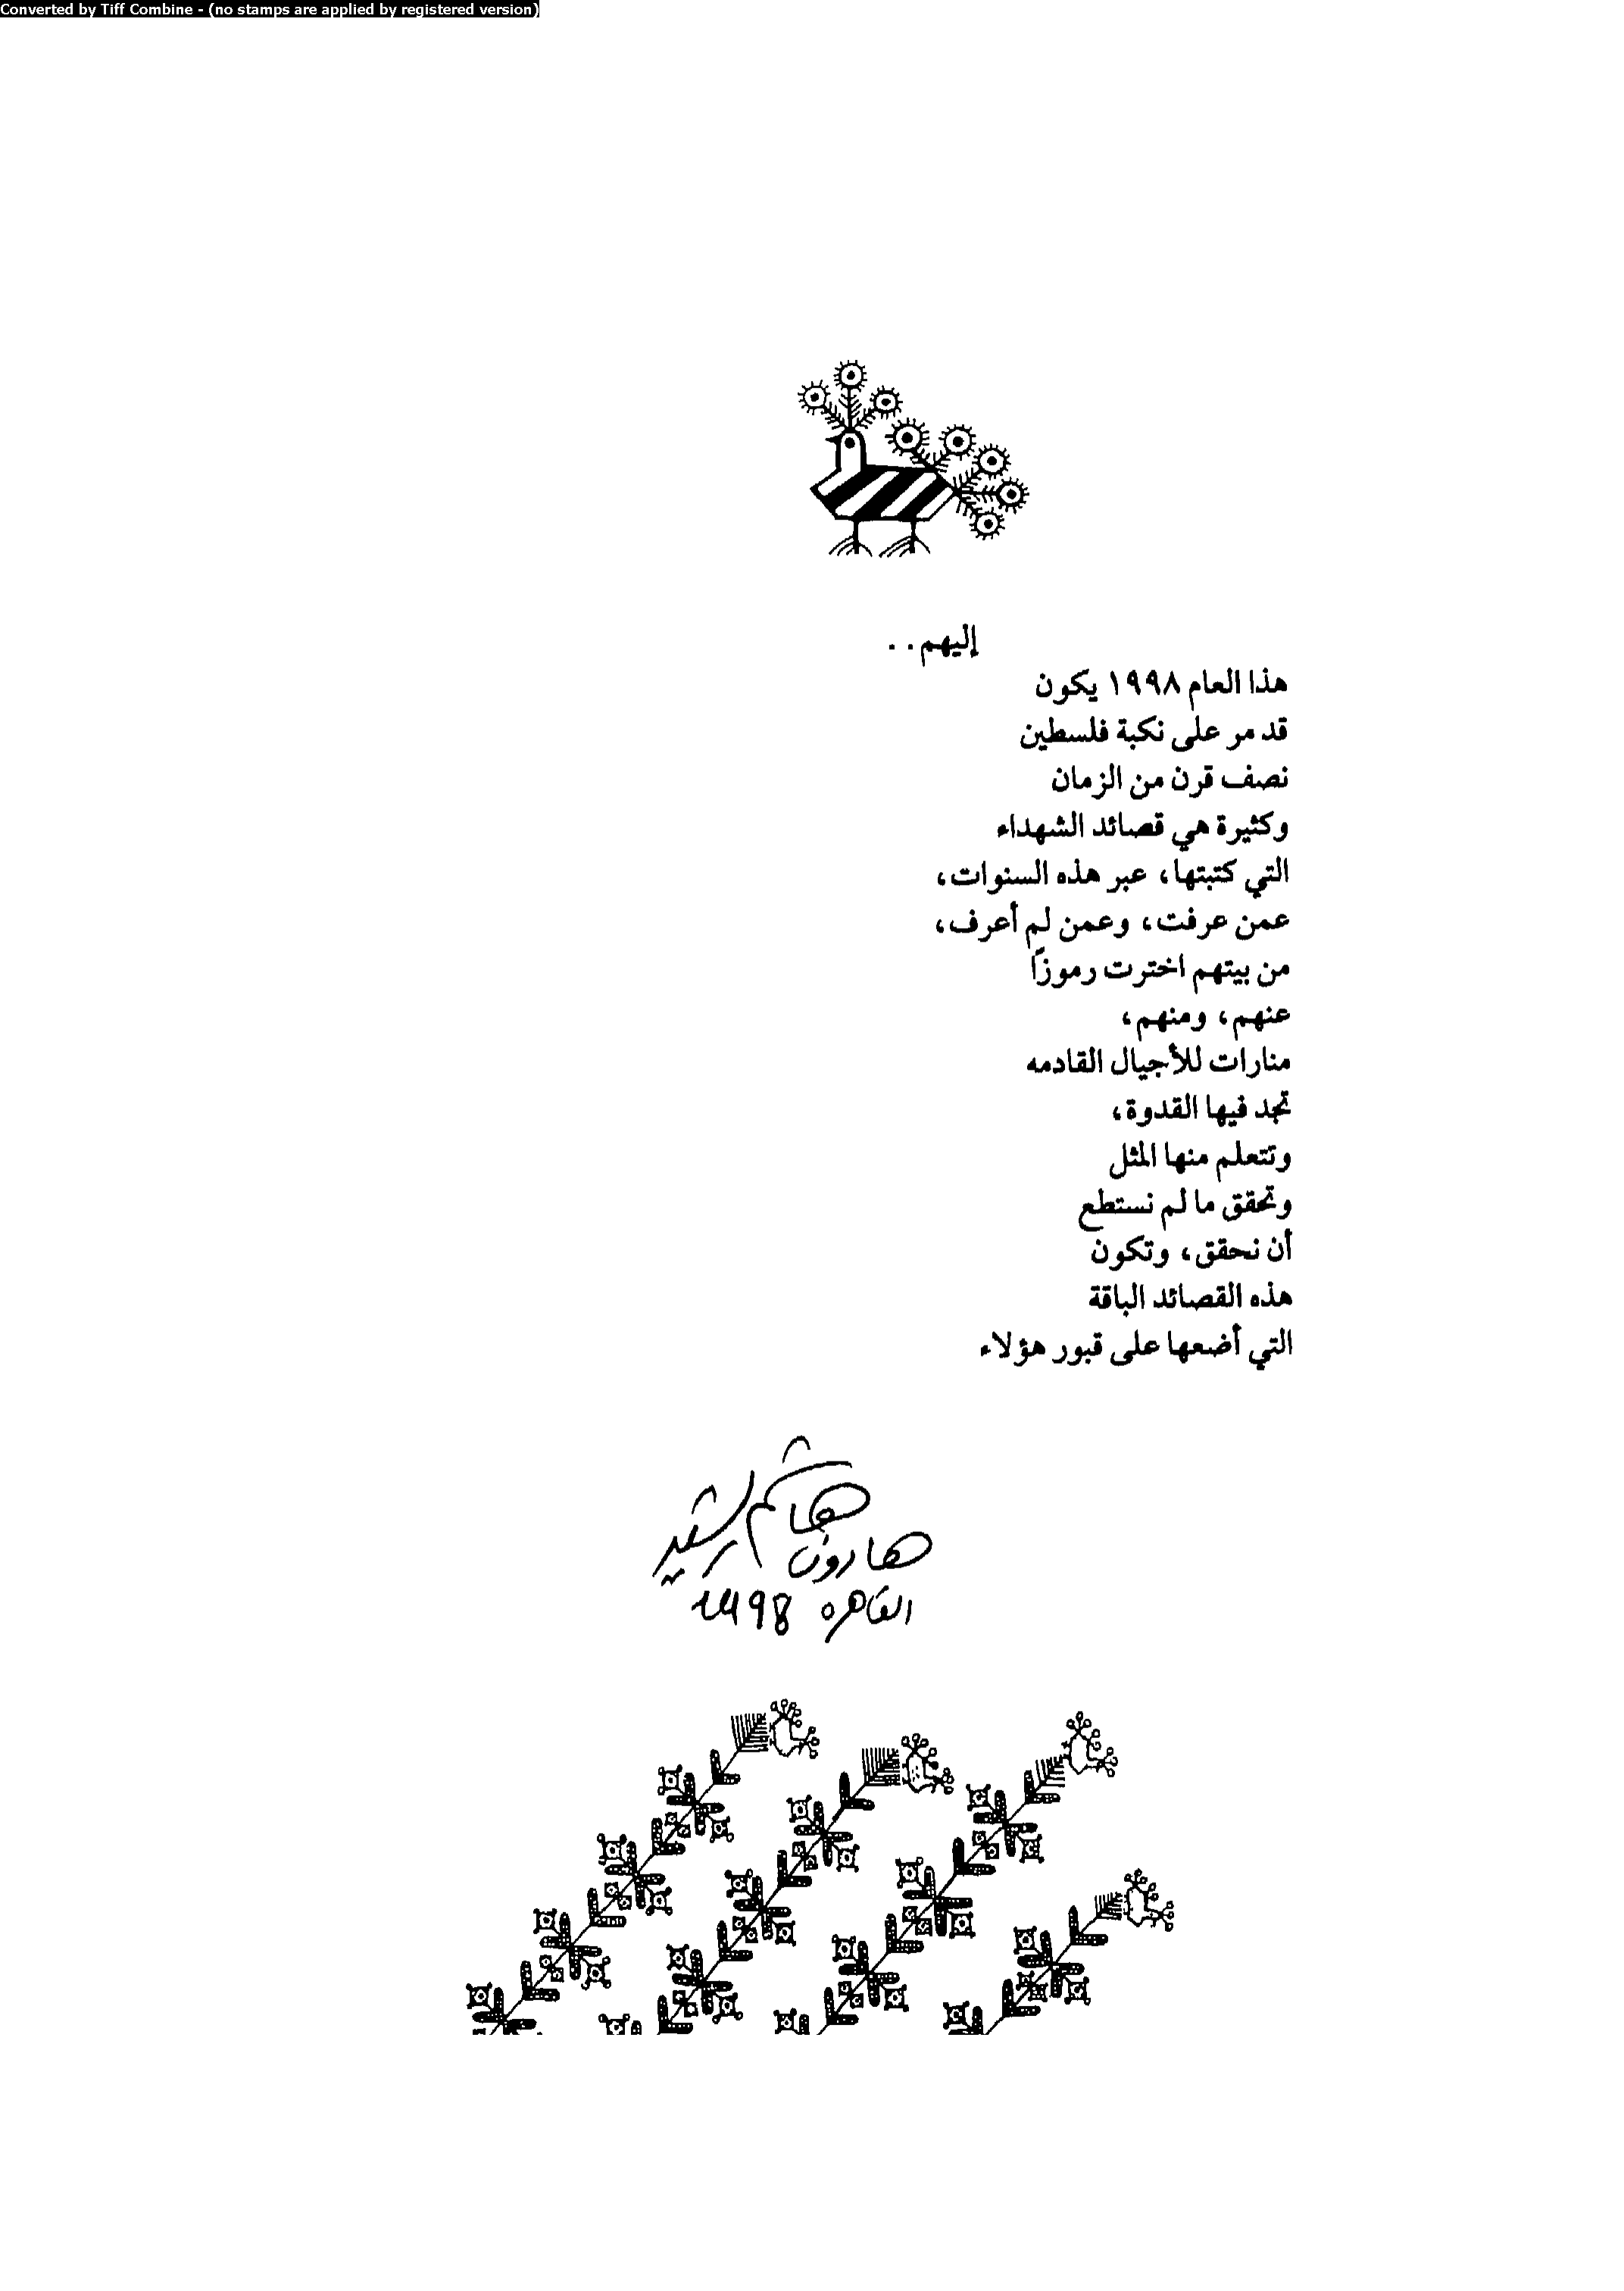 Converted by Tiff Combine - (no stamps are applied by registered version)
إليهم..
هذا العام ١٩٩٨ يكون
قد مر على نكبة فلسطين
نصف قرن من الزمان
وكثيرة هي قصائد الشهداء
التي كتبتها، عبر هذه السنوات،
عمن عرفت، وعمن لم أعرف،
من بيتهم اخترت رموزًا
عنهم، ومنهم،
منارات للأجيال القادمه
تجد فيها القدوة،
وتتعلم منها المثل
وتحقق ما لم نستطع
أن نحقق، وتكون
هذه القصائد الباقة
التي أضعها على قبور هؤلاء
هارون هاشم رشيد
القاهرة 1998